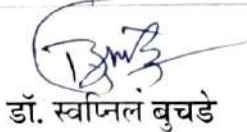 डॉ. स्वप्निल बुचडे